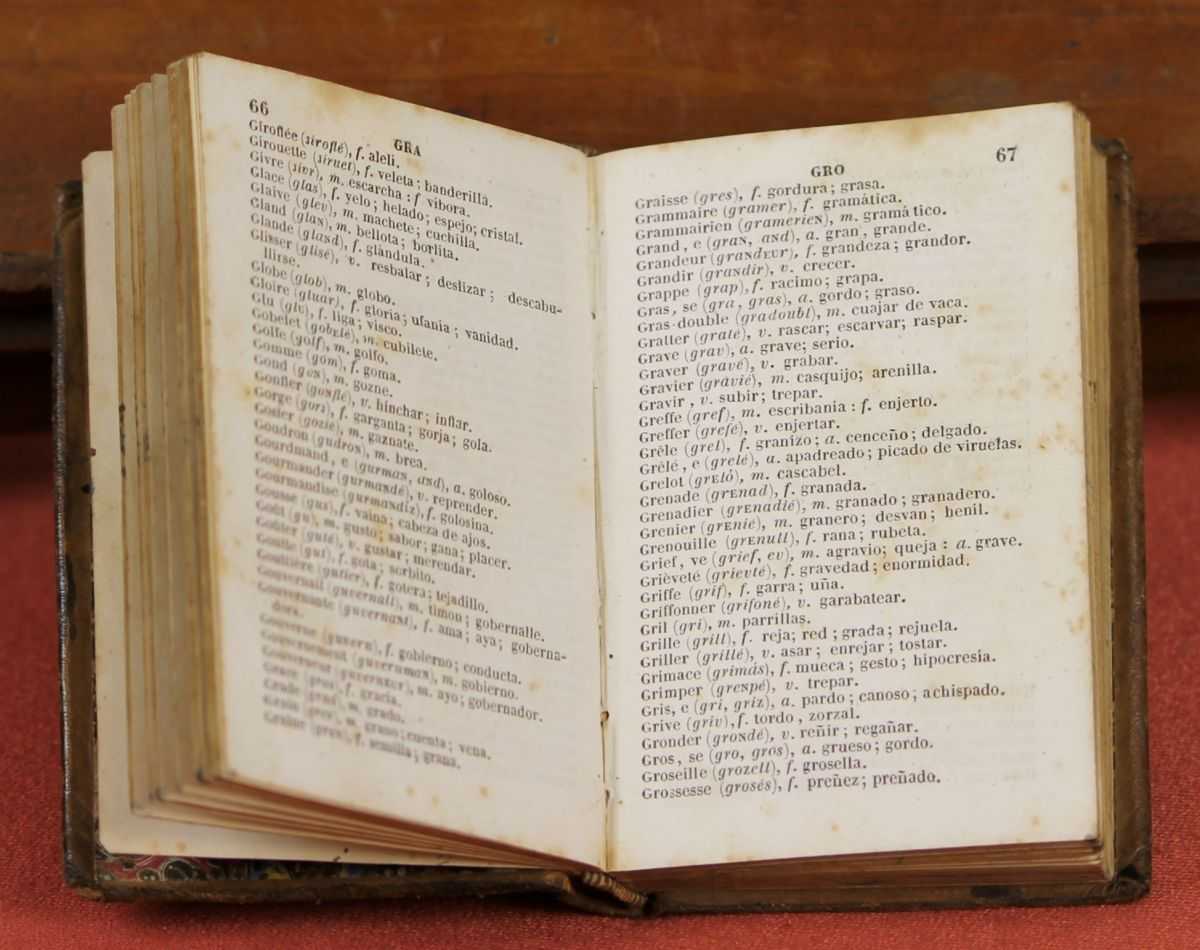 66
GRA
Giroflée (siroflé), f. aleli.
Girouette (siruet), f. veleta; banderilla.
Givre (sivr), m. escarcha: f vibora.
Glace (glas), f. yelo; helado; espejo; cristal.
Glaive (glev), m. machete; cuchilla.
Gland (glaN), m. bellota; borlita.
Glande (glaNd), f. glàndula.
Glisser (glisé), v. resbalar; deslizar; descabu-
llirse.
Globe (glob), m. globo.
Gloire (gluar), f. gloria; ufania; vanidad.
Glu (glu), f. liga; visco.
Gobelet (gobelé), m. cubilete.
Golfe (golf), m. golfo.
Gomme (gom), f. goma.
Gond (goN), m. gozne.
Gonfler (goNflé), v. hinchar; inflar.
Gorge (gors), f. garganta; gorja; gola.
Gosier (gozié), m. gaznate.
Goudron (gudroN), m. brea.
Gourdmand, e (gurmaN, aNd), a. goloso.
Gourmander (gurmaNdé), v. reprender.
Gourmandise (gurmaNdiz), f. golosina.
Gousse (gus), f. vaina; cabeza de ajos.
Goût (gu), m. gusto; sabor; gana; placer.
Goûter (guté), v. gustar; merendar.
Goutte (gut), f. gota; sorbito.
Gouttière (gutier), f. gotera; tejadillo.
Gouvernail (guvernall), m. timon; gobernalle.
Gouvernante (guvernaNt), f. ama; aya; goberna-
dora.
Gouverne (guvern), f. gobierno; conducta.
Gouvernement (guvernmaN), m. gobierno.
Gouverneur (guvernEUr), m. ayo; gobernador.
Grace (gras), f. gracia.
Grade (grad), m. grado.
Grain (greN), m. grano; cuenta; vena.
Graine (gren), f. semilla; grana.
GRO
67
Graisse (gres), f. gordura; grasa.
Grammaire (gramer), f. gramática.
Grammairien (gramerieN), m. gramático.
Grand, e (graN, aNd), a. gran, grande.
Grandeur (graNdEUr), f. grandeza; grandor.
Grandir (graNdir), v. crecer.
Grappe (grap), f. racimo; grapa.
Gras, se (gra, gras), a. gordo; graso.
Gras-double (gradoubl), m. cuajar de vaca.
Gratter (graté), v. rascar; escarvar; raspar.
Grave (grav), a. grave; serio.
Graver (gravé), v. grabar.
Gravier (gravié), m. casquijo; arenilla.
Gravir, v. subir; trepar.
Greffe (gref), m. escribania: f. enjerto.
Greffer (grefé), v. enjertar.
Grêle (grel), f. granizo; a. cenceño; delgado.
Grêlé, e (grelé), a. apadreado; picado de viruelas.
Grelot (grEló), m. cascabel.
Grenade (grEnad), f. granada.
Grenadier (grEnadié), m. granado; granadero.
Grenier (grEnié), m. granero; desvan; henil.
Grenouille (grEnull), f. rana; rubeta.
Grief, ve (grief, ev), m. agravio; queja: a. grave.
Grièveté (grievté), f. gravedad; enormidad.
Griffe (grif), f. garra; uña.
Griffonner (grifoné), v. garabatear.
Gril (gri), m. parrillas.
Grille (grill), f. reja; red; grada; rejuela.
Griller (grillé), v. asar; enrejar; tostar.
Grimace (grimás), f. mueca; gesto; hipocresia.
Grimper (greNpé), v. trepar.
Gris, e (gri, griz), a. pardo; canoso; achispado.
Grive (griv), f. tordo, zorzal.
Gronder (groNdé), v. reñir; regañar.
Gros, se (gro, gros), a. grueso; gordo.
Groseille (grozell), f. grosella.
Grossesse (grosés), f. preñez; preñado.